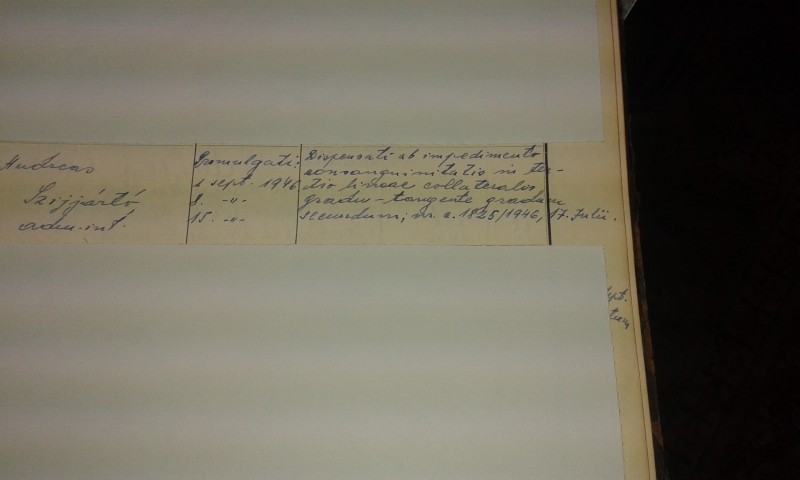 Andreas
Szijjártó
adm. int.
Promulgati:
1 sept. 1946
8. -"-
15. -"-
Dispensati ab impedimento
consanguinitatis in ter-
tio lineae collateralis
gradu - tangente gradum
secundum, nr. e. 1825/1946, 17. Julii.
sept.